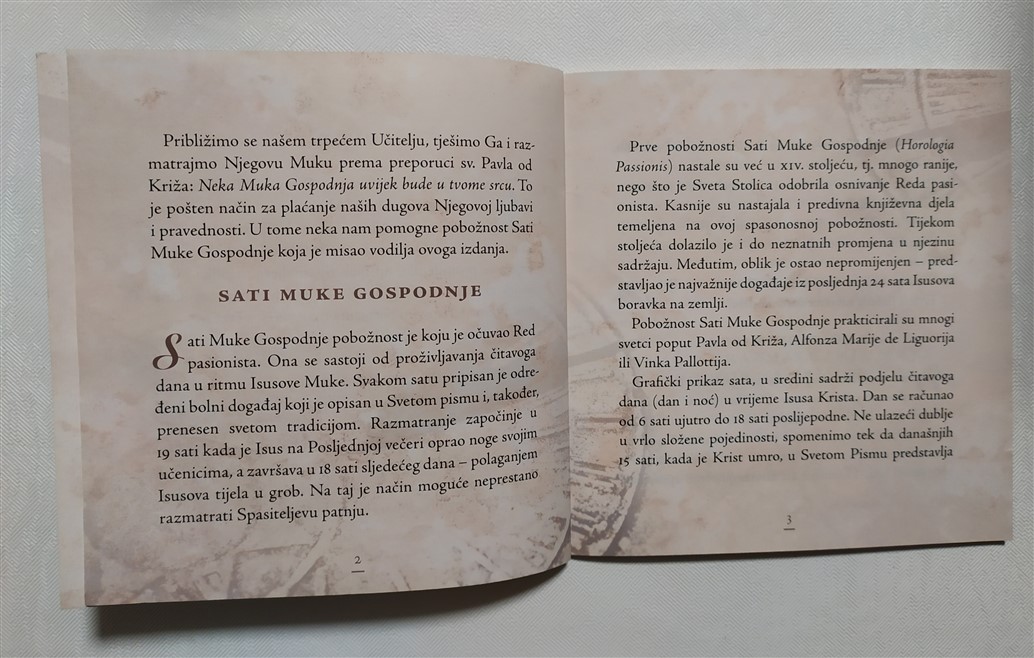 Približimo se našem trpećem Učitelju, tješimo Ga i raz-
matrajmo Njegovu Muku prema preporuci sv. Pavla od
Križa: Neka Muka Gospodnja uvijek bude u tvome srcu. To
je pošten način za plaćanje naših dugova Njegovoj ljubavi
i pravednosti. U tome neka nam pomogne pobožnost Sati
Muke Gospodnje koja je misao vodilja ovoga izdanja.
SATI MUKE GOSPODNJE
Sati Muke Gospodnje pobožnost je koju je očuvao Red
pasionista. Ona se sastoji od proživljavanja čitavoga
dana u ritmu Isusove Muke. Svakom satu pripisan je odre-
đeni bolni događaj koji je opisan u Svetom pismu i, također,
prenesen svetom tradicijom. Razmatranje započinje u
19 sati kada je Isus na Posljednjoj večeri oprao noge svojim
učenicima, a završava u 18 sati sljedećeg dana – polaganjem
Isusova tijela u grob. Na taj je način moguće neprestano
razmatrati Spasiteljevu patnju.
2
Prve pobožnosti Sati Muke Gospodnje (Horologia
Passionis) nastale su već u XIV. stoljeću, tj. mnogo ranije,
nego što je Sveta Stolica odobrila osnivanje Reda pasi-
onista. Kasnije su nastajala i predivna književna djela
temeljena na ovoj spasonosnoj pobožnosti. Tijekom
stoljeća dolazilo je i do neznatnih promjena u njezinu
sadržaju. Međutim, oblik je ostao nepromijenjen – pred-
stavljao je najvažnije događaje iz posljednja 24 sata Isusova
boravka na zemlji.
Pobožnost Sati Muke Gospodnje prakticirali su mnogi
svetci poput Pavla od Križa, Alfonza Marije de Liguorija
ili Vinka Pallottija.
Grafički prikaz sata, u sredini sadrži podjelu čitavoga
dana (dan i noć) u vrijeme Isusa Krista. Dan se računao
od 6 sati ujutro do 18 sati poslijepodne. Ne ulazeći dublje
u vrlo složene pojedinosti, spomenimo tek da današnjih
15 sati, kada je Krist umro, u Svetom Pismu predstavlja
3